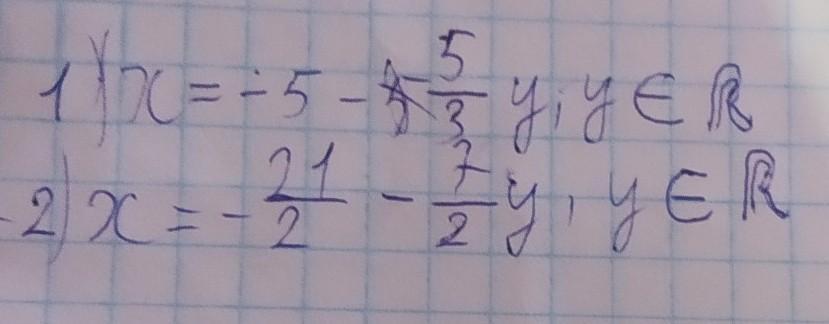 1) x = -5 - 5/3 y, y ∈ ℝ
2) x = - 21/2 - 7/2 y, y ∈ ℝ